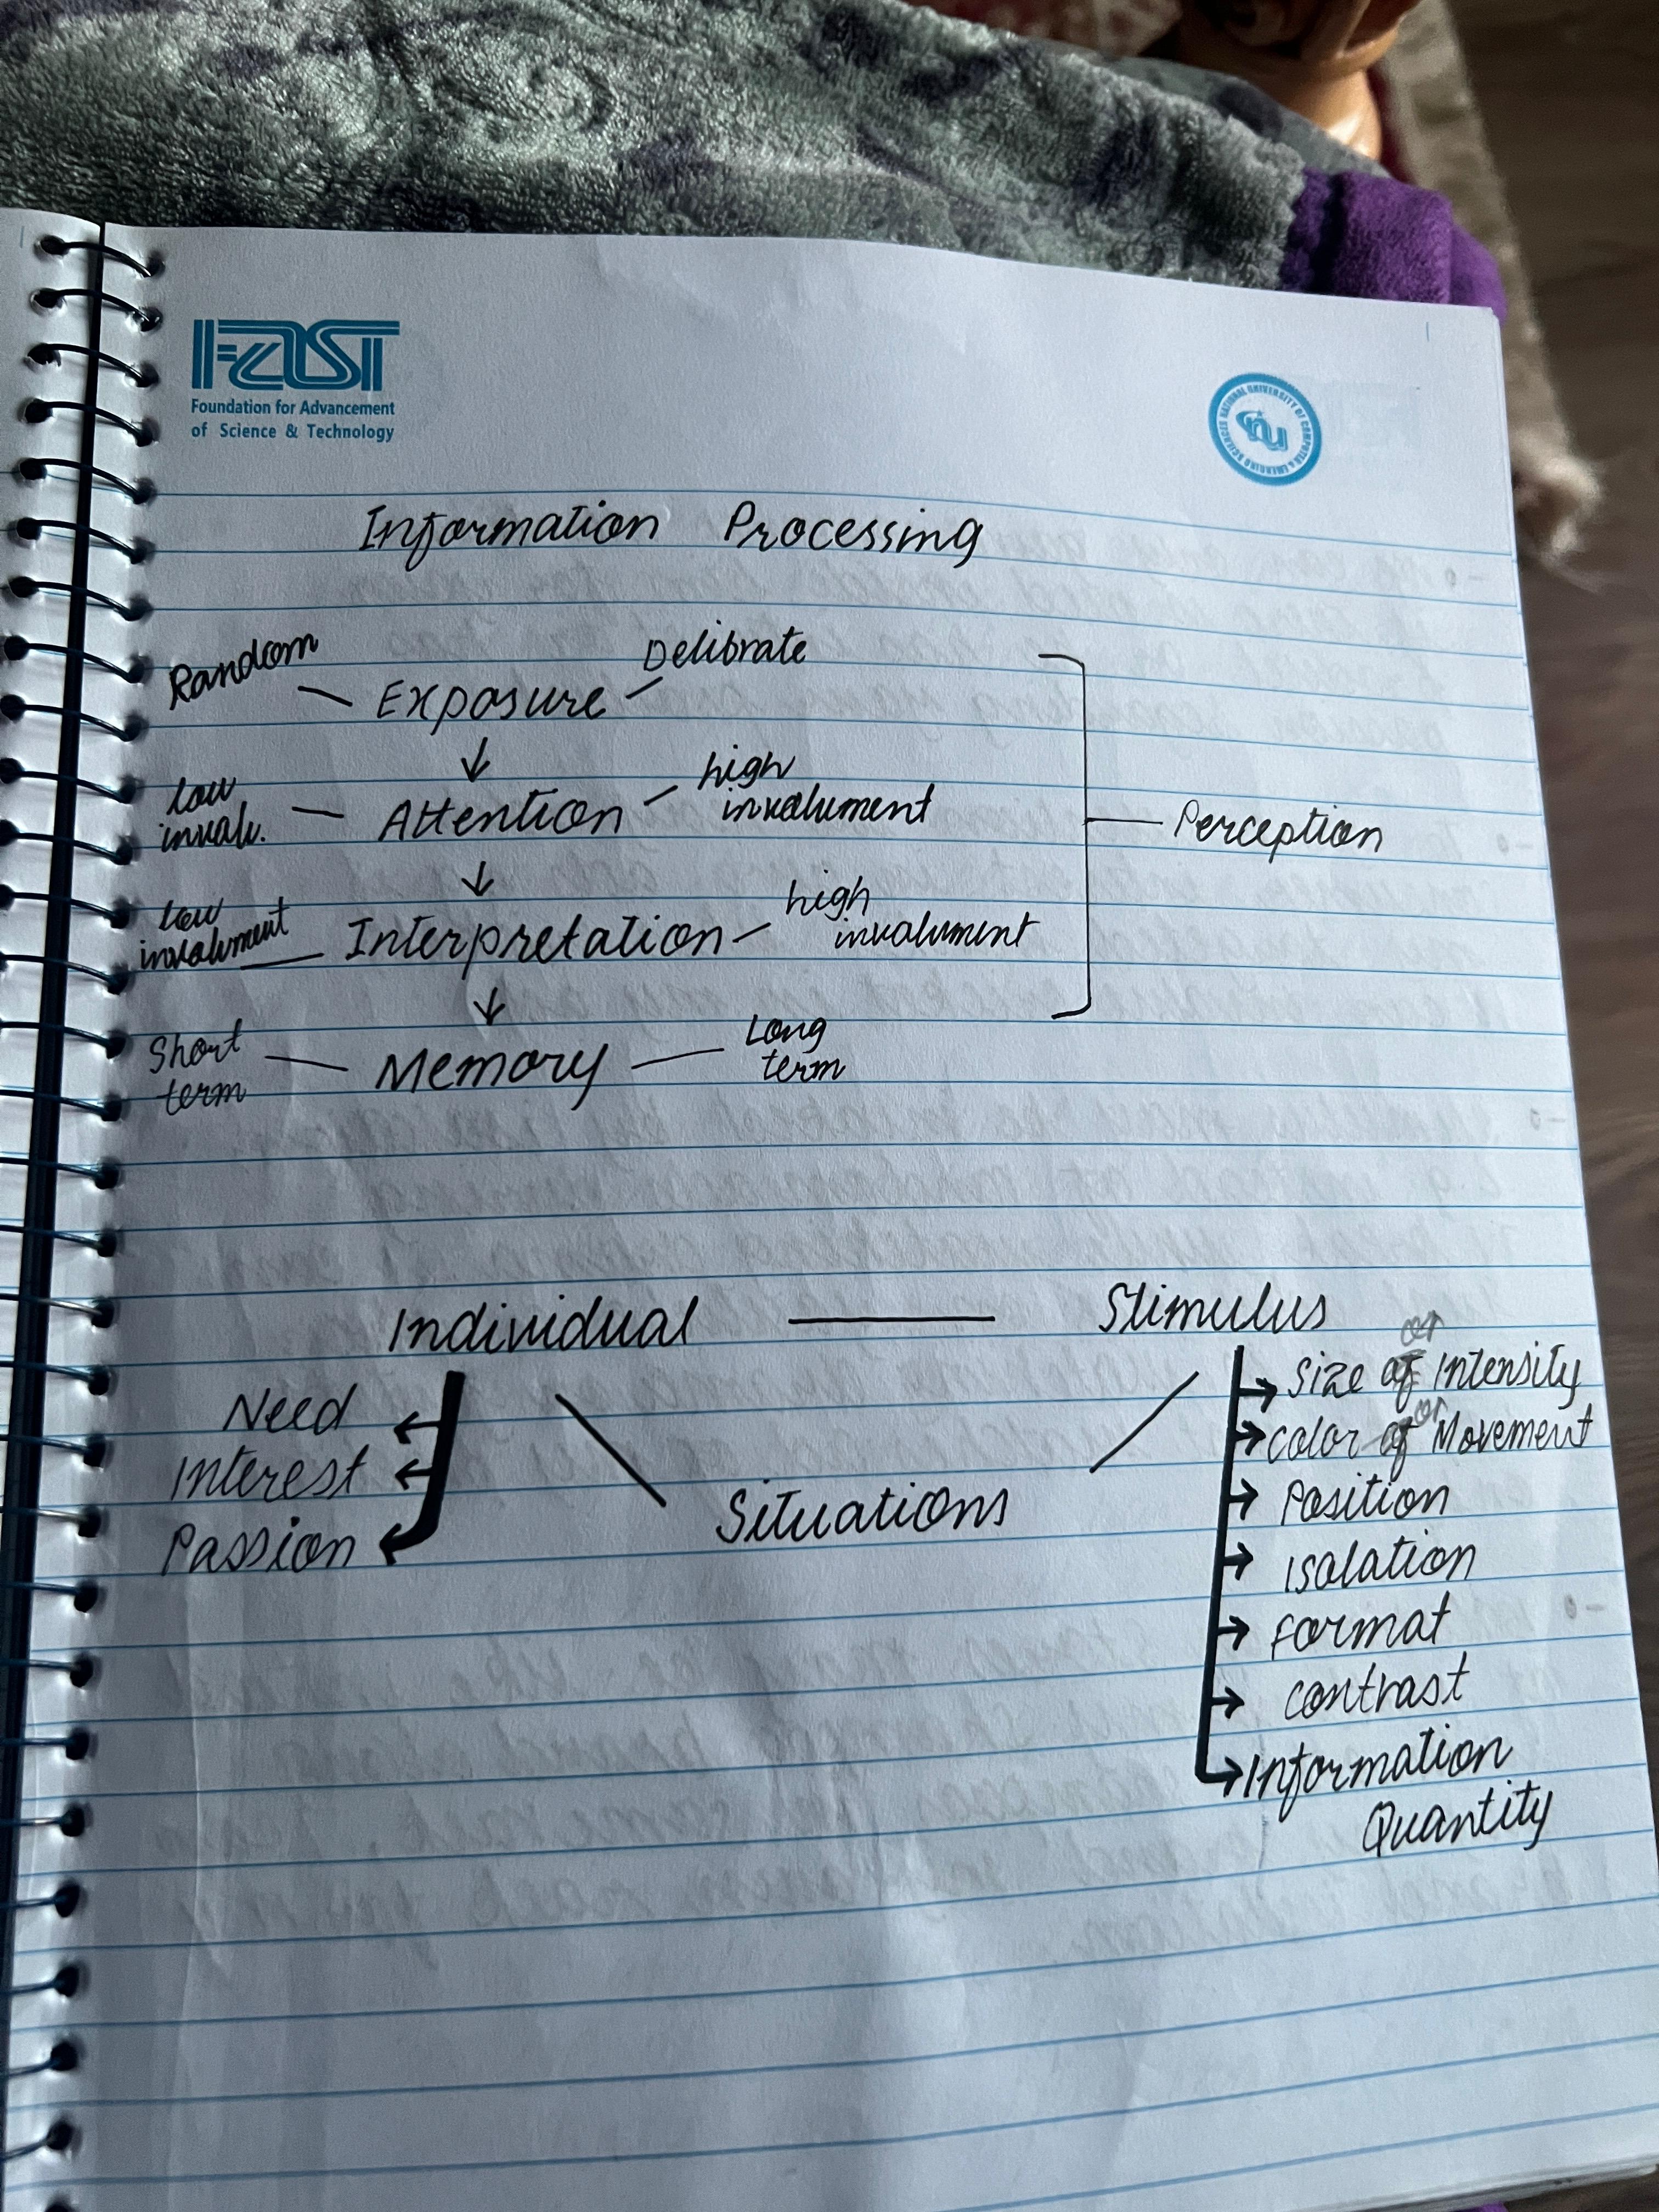 FAST
Foundation for Advancement
of Science & Technology
NATIONAL UNIVERSITY OF COMPUTER & EMERGING SCIENCES
nu
Information Processing
Random Exposure Delibrate
low involv. Attention high involument
Perception
low involument Interpretation high involument
Short term Memory Long term
Individual Stimulus
Need
Interest
Passion
Situations
Size or Intensity
color or Movement
Position
isolation
format
contrast
Information
Quantity